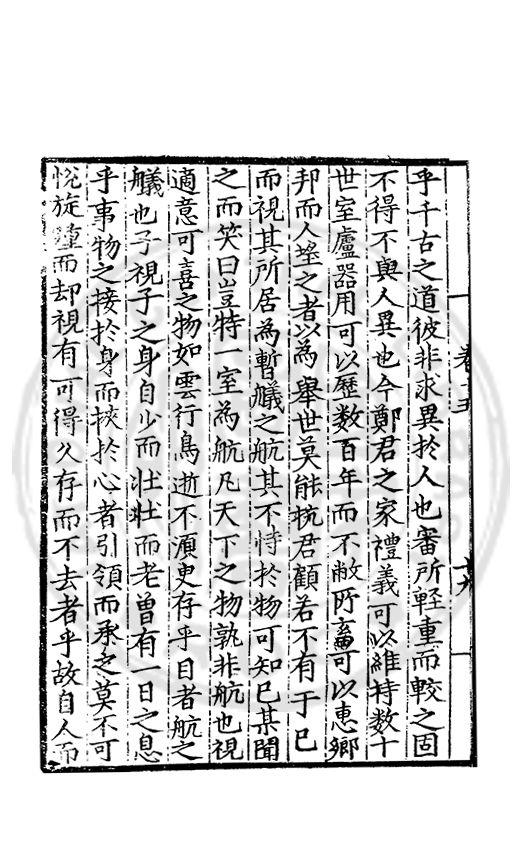 乎千古之道彼非求異於人也審所軽重而較之固
不得不與人異也今鄭君之家禮義可以維持数十
世室廬器用可以歷数百年而不敝所畜可以惠鄉
邦而人望之者以為舉世莫能抗君顧若不有于已
而視其所居為暫艤之航其不恃於物可知已某聞
之而笑曰豈特一室為航凡天下之物孰非航也視
適意可喜之物如雲行鳥逝不湏臾存乎目者航之
艤也子視子之身自少而壮壮而老曽有一日之息
乎事物之接於身而挾於心者引領而承之莫不可
悅旋踵而却視有可得久存而不去者乎故自人而